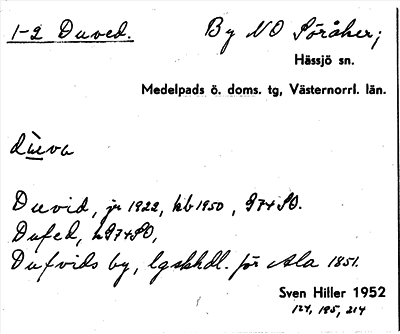 1-2 Duved. By NO Söråker;
Hässjö sn.
Medelpads ö. doms. tg, Västernorrl. län.
dùva
Duvid, jr 1922, kb 1950, G74SO.
Dufed, hG74SO,
Dufvids by, lgskhdl. för Ala 1851.
Sven Hiller 1952
124, 185, 214